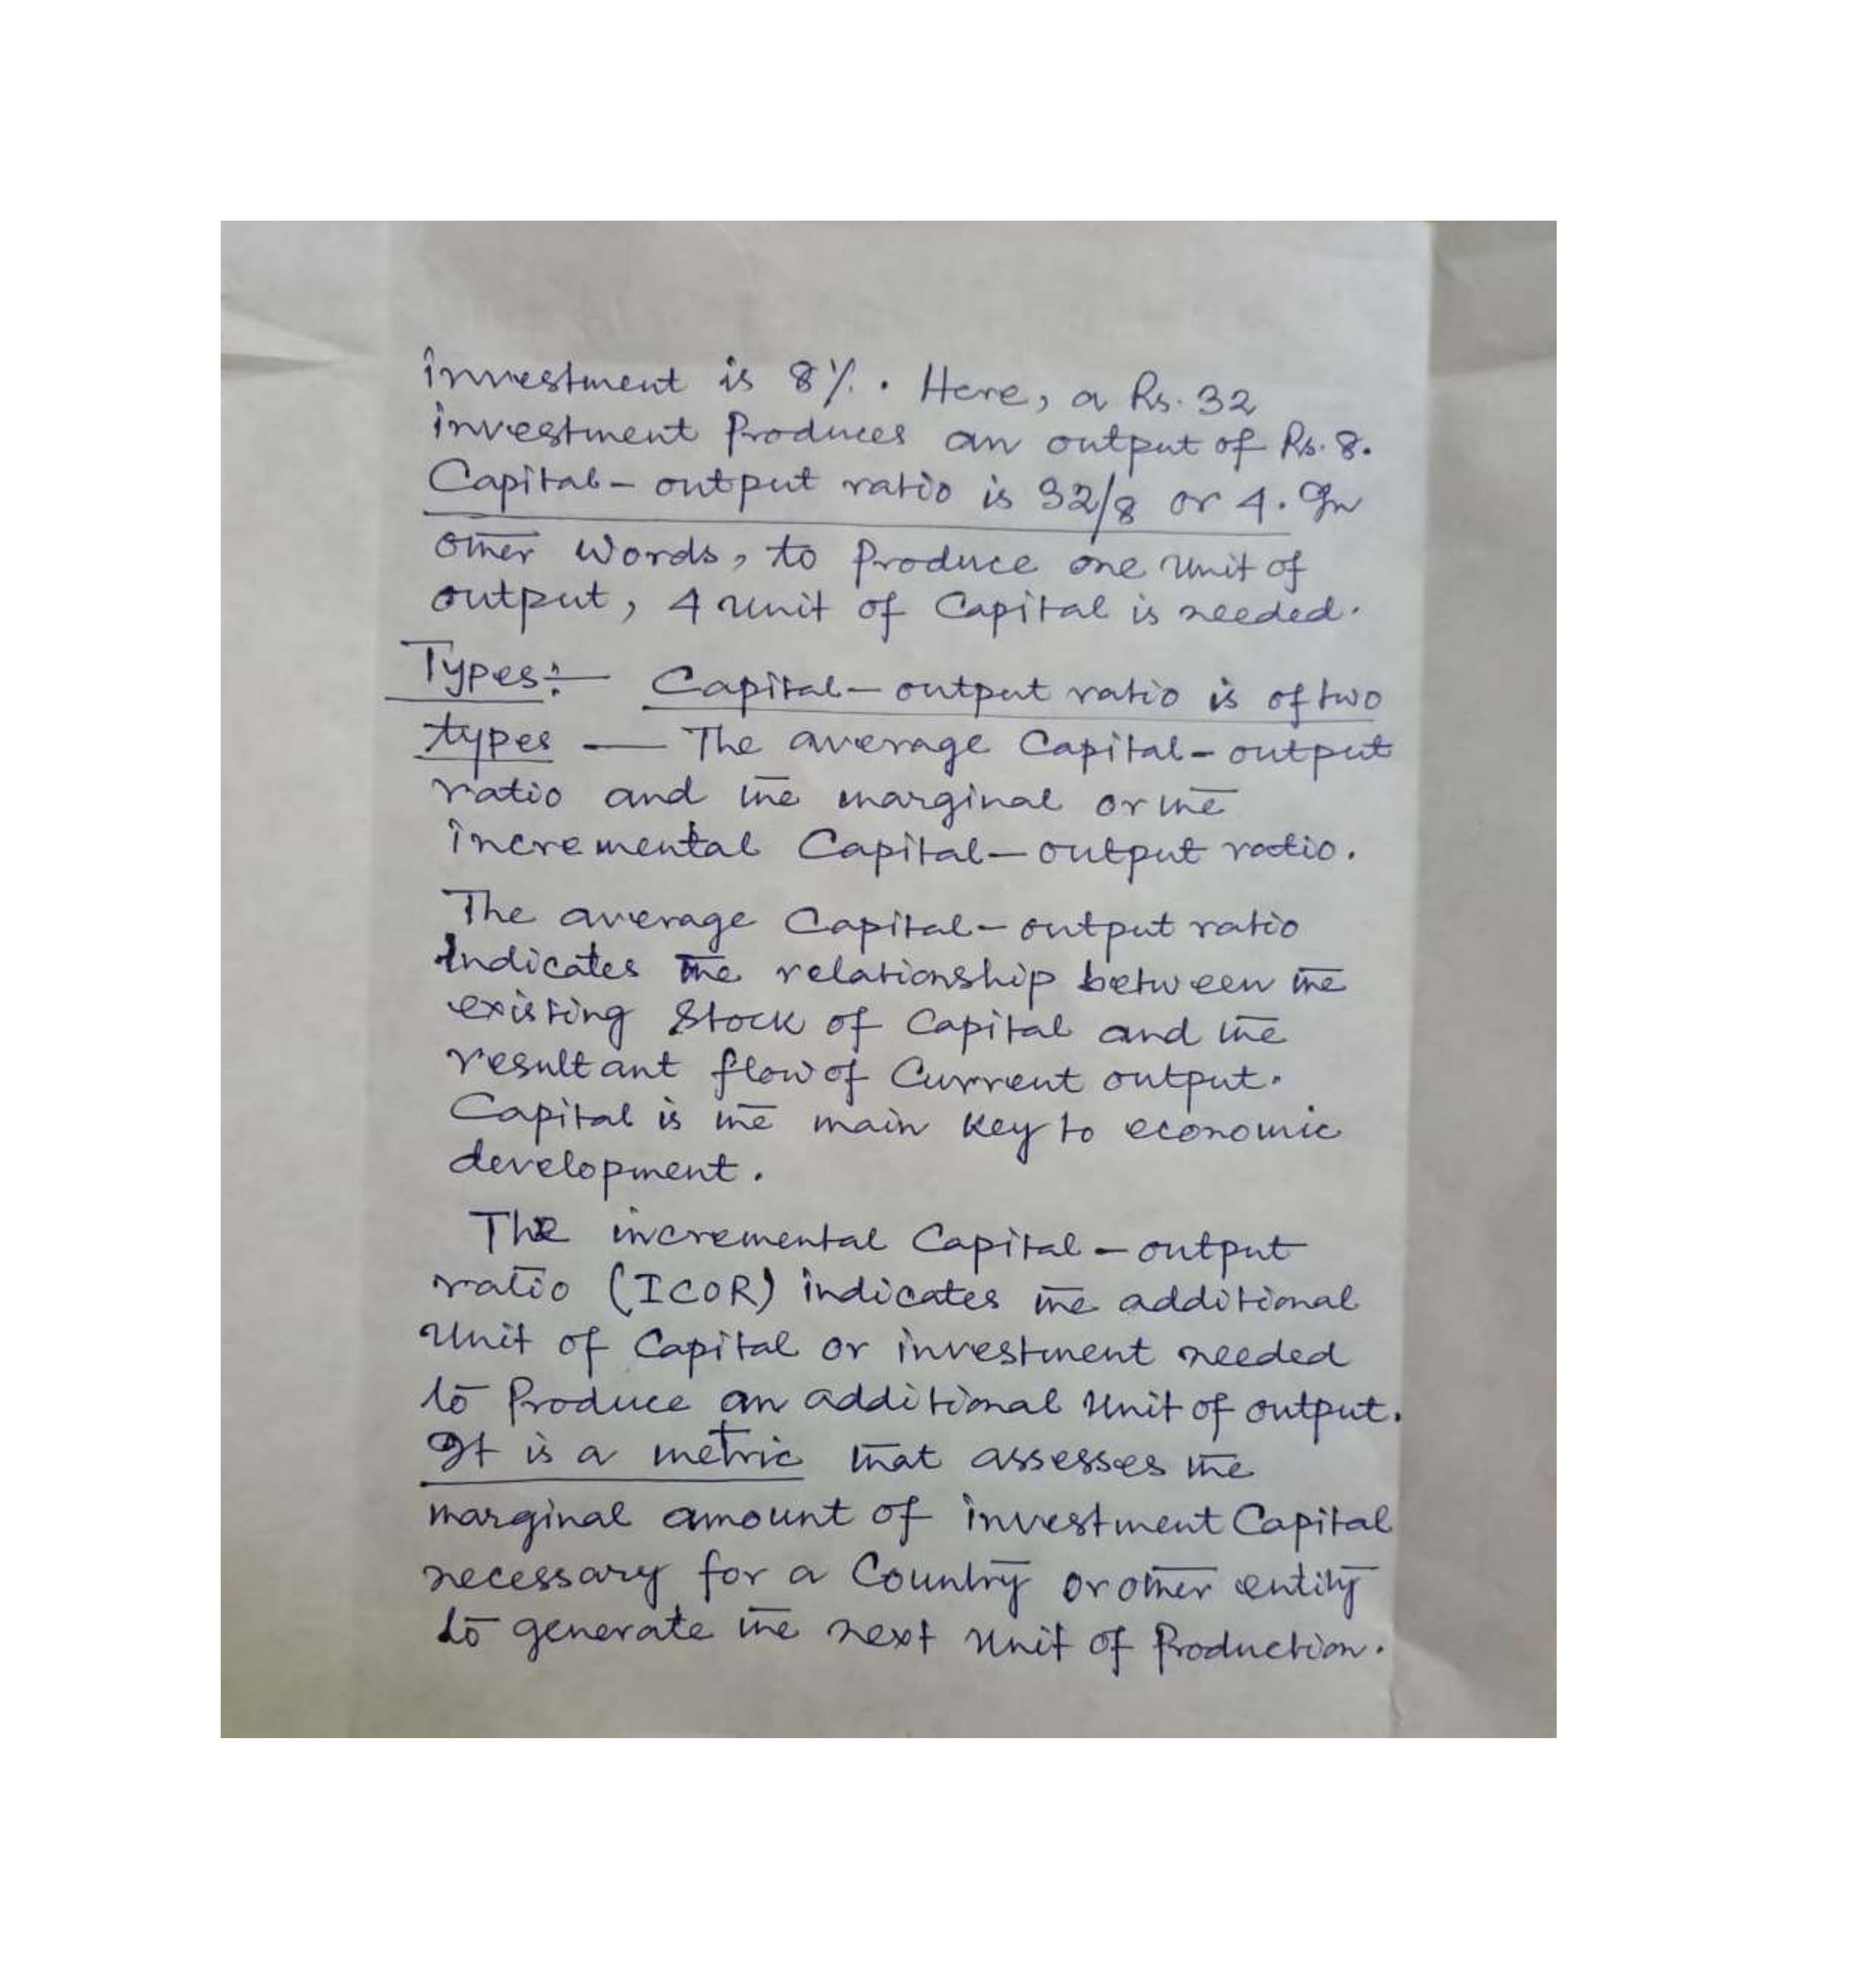 investment is 8%. Here, a Rs. 32
investment Produces an output of Rs. 8.
Capital - output ratio is 32/8 or 4. In
other words, to Produce one Unit of
output, 4 unit of Capital is needed.
Types:- Capital - output ratio is of two
types — The average Capital - output
ratio and the marginal or the
incremental Capital - output ratio.
The average Capital - output ratio
Indicates the relationship between the
existing Stock of Capital and the
resultant flow of Current output.
Capital is the main key to economic
development.
The incremental Capital - output
ratio (ICOR) indicates the additional
Unit of Capital or investment needed
to Produce an additional Unit of output.
It is a metric that assesses the
marginal amount of investment Capital
necessary for a Country or other entity
to generate the next Unit of Production.